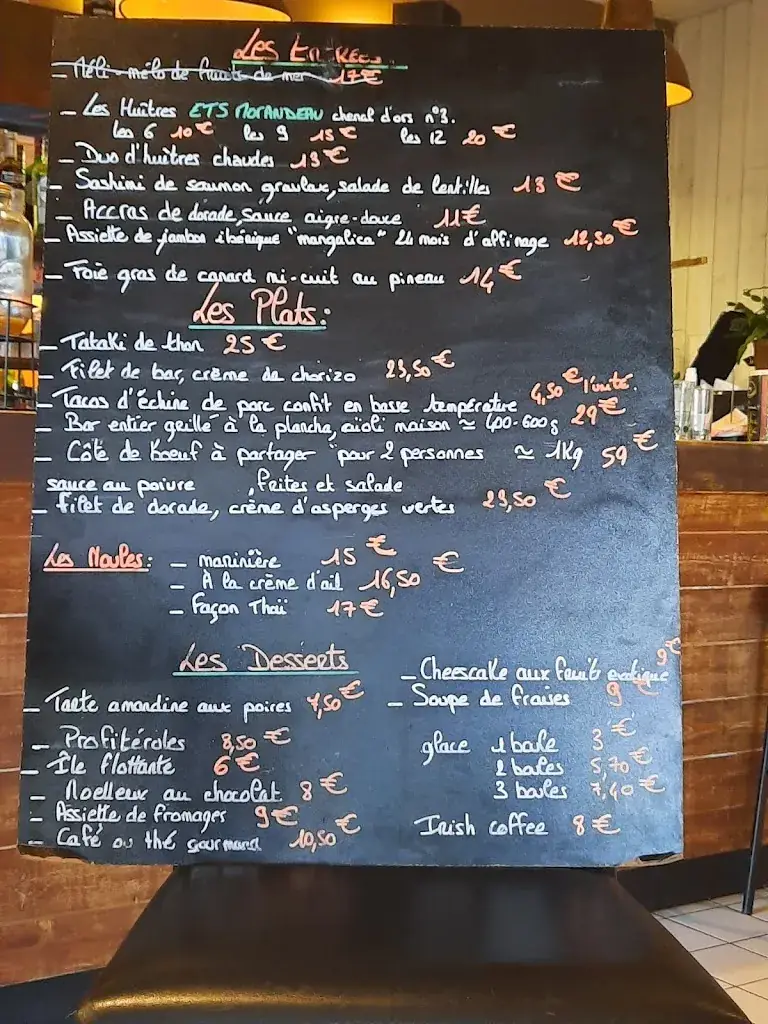 Les Entrées
- Méli-mélo de fruits de mer 17€
- Les Huîtres ETS MORANDEAU chenal d'ors n°3.
les 6 10€ les 9 15€ les 12 20€
- Duo d'huîtres chaudes 13€
- Sashimi de saumon gravlax, salade de lentilles 13€
- Accras de dorade, sauce aigre-douce 11€
- Assiette de jambon ibérique "mangalica" 24 mois d'affinage 12,50€
- Foie gras de canard mi-cuit au pineau 14€
Les Plats:
- Tataki de thon 25€
- Filet de bar, crème de chorizo 23,50€
- Tacos d'échine de porc confit en basse température 4,50€ l'unité.
- Bar entier grillé à la plancha, aïoli maison ≃ 400-600g 29€
- Côte de boeuf à partager pour 2 personnes ≃ 1Kg 59€
sauce au poivre, frites et salade
- filet de dorade, crème d'asperges vertes 23,50€
Les Moules: - marinière 15€
- À la crème d'ail 16,50€
- Façon Thaï 17€
Les Desserts
- Tarte amandine aux poires 7,50€
- Profitéroles 8,50€
- Île flottante 6€
- Moelleux au chocolat 8€
- Assiette de fromages 9€
- Café ou thé gourmand 10,50€
- Cheescake aux fruits exotique 9€
- Soupe de fraises 9€
glace 1 boule 3€
2 boules 5,70€
3 boules 7,40€
Irish coffee 8€